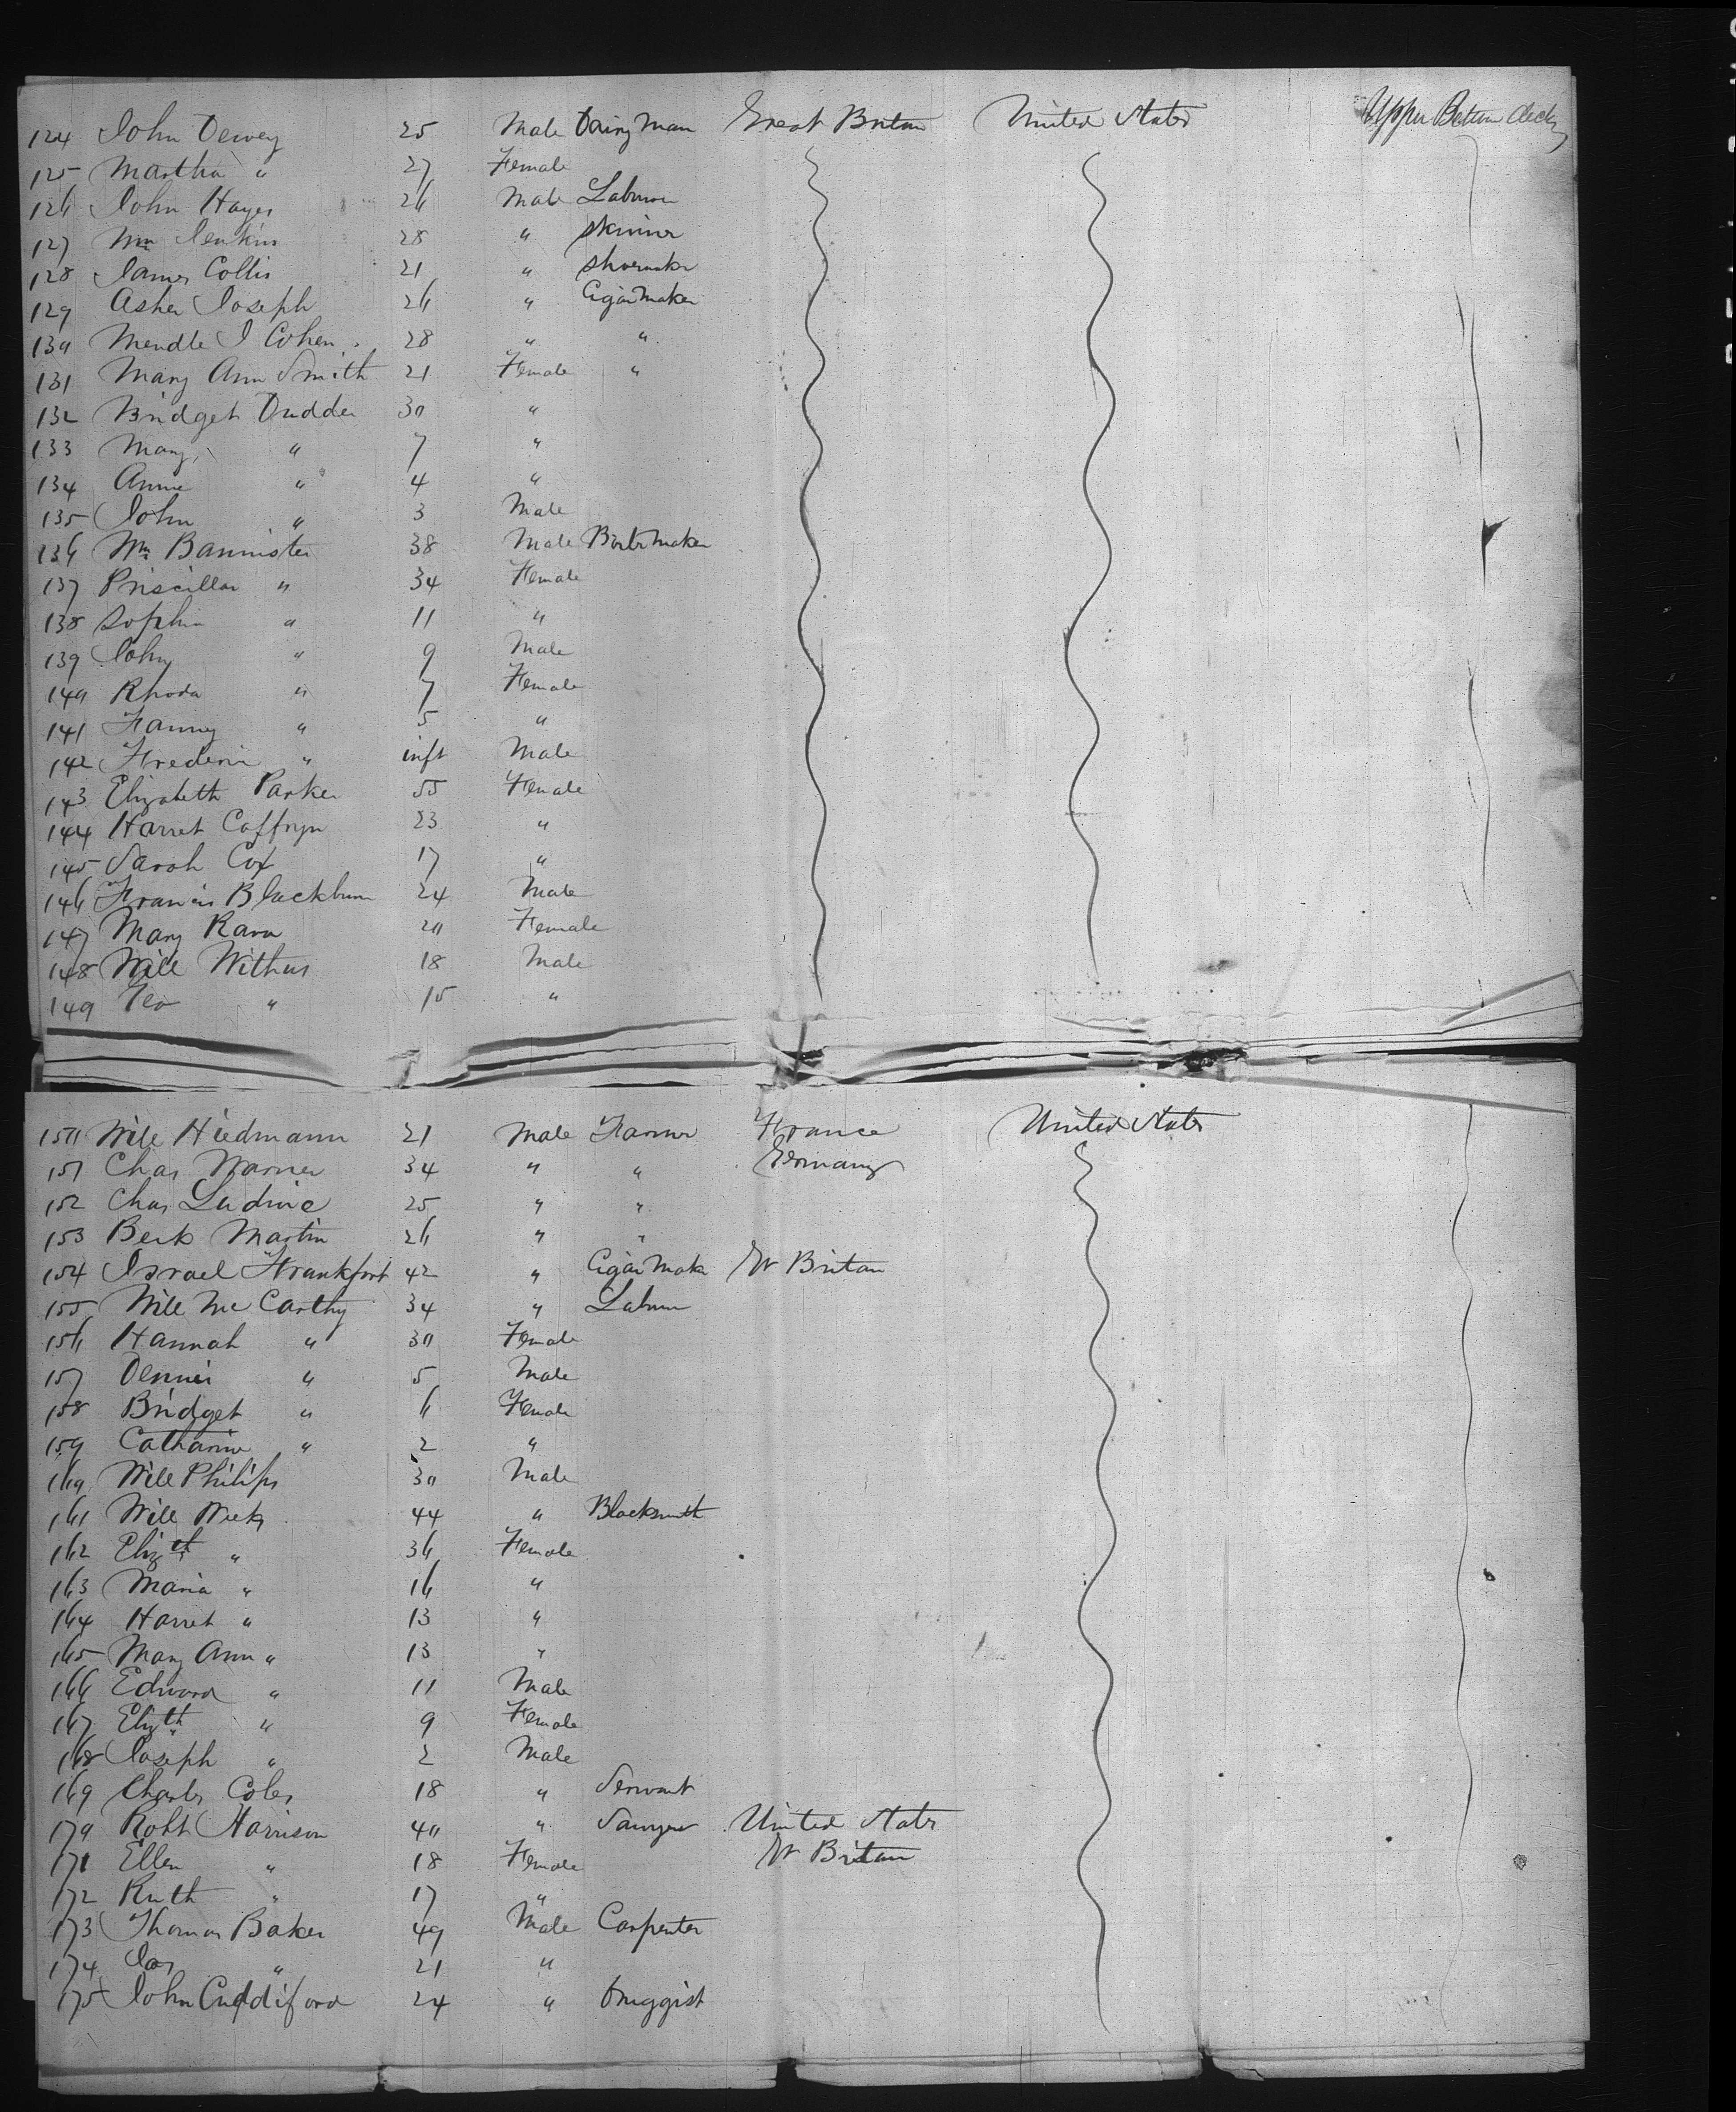 124 John Dewey 25 Male Dairy Man Great Britan United States Upper Between decks
125 Martha " 27 Female
126 John Hayes 26 Male Labourer
127 Wm Jenkins 28 " Skinner
128 James Collis 21 " Shoemaker
129 Asher Joseph 26 " Cigar Maker
130 Mendle I Cohen 28 " "
131 Mary Ann Smith 21 Female "
132 Bridget Dudden 30 "
133 Mary " 7 "
134 Annie " 4 "
135 John " 3 Male
136 Wm Bannister 38 Male Boiler Maker
137 Priscilla " 34 Female
138 Sophia " 11 "
139 John " 9 Male
140 Rhoda " 7 Female
141 Fanny " 5 "
142 Frederic " inft Male
143 Elizabeth Parker 55 Female
144 Harret Caffryn 23 "
145 Sarah Cox 17 "
146 Francis Blackburn 24 Male
147 Mary Rara 20 Female
148 Will Withus 18 Male
149 Geo " 15 "
150 Will Hiedmann 21 Male Farmer France United States
151 Chas Warner 34 " " Germany
152 Chas Ludwic 25 " "
153 Berk Martin 26 " "
154 Israel Frankfort 42 " Cigar Mak Gr Britan
155 Will Mc Carthy 34 " Labourer
156 Hannah " 30 Female
157 Dennis " 5 Male
158 Bridget " 6 Female
159 Catharine " 2 "
160 Will Philips 30 Male
161 Will Weeks 44 " Blacksmith
162 Elizth " 36 Female
163 Maria " 16 "
164 Harret " 13 "
165 Mary Ann " 13 "
166 Edward " 11 Male
167 Elizth " 9 Female
168 Joseph " 2 Male
169 Charles Coles 18 " Servant
170 Robt Harrison 40 " Sawyer United States
171 Ellen " 18 Female Gr Britan
172 Ruth " 17 "
173 Thomas Baker 49 Male Carpenter
174 Jas " 21 "
175 John Cuddiford 24 " Druggist